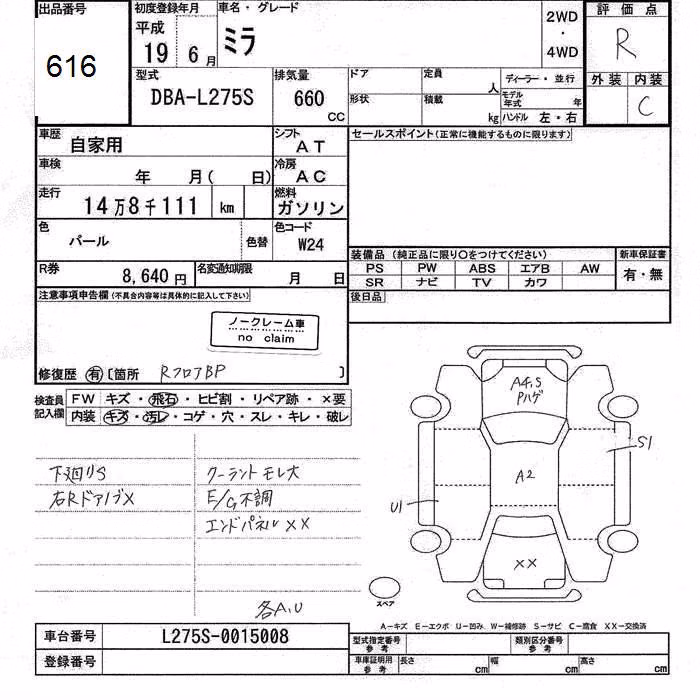 出品番号
616
初度登録年月
平成
19 6月
車名・グレード
ミラ
2WD
・
4WD
評価点
R
外装 内装
C
型式
DBA-L275S
排気量
660
CC
ドア
定員
人
形状
積載
kg
ディーラー・並行
モデル年式 年
ハンドル 左・右
車歴
自家用
シフト
AT
車検
年 月( 日)
冷房
AC
走行
14万8千111 km
燃料
ガソリン
色
パール
色替
色コード
W24
R券
8,640円
名変通知期限
月 日
セールスポイント(正常に機能するものに限ります)
装備品(純正品に限り○をつけてください)
PS PW ABS エアB AW
SR ナビ TV カワ
新車保証書
有・無
後日品
注意事項申告欄(不具合内容等は具体的に記入して下さい)
ノークレーム車
no claim
修復歴 有 〔箇所 RフロアBP 〕
検査員記入欄
FW キズ・飛石・ヒビ割・リペア跡・×要
内装 キズ・汚レ・コゲ・穴・スレ・キレ・破レ
下廻りS
右Rドアノブ×
クーラントモレ大
E/G不調
エンドパネル××
各A,U
A4,S
Pハゲ
A2
S1
U1
××
スペア
A-キズ E-エクボ U-凹み W-補修跡 S-サビ C-腐食 XX-交換済
車台番号
L275S-0015008
登録番号
型式指定番号
参考
類別区分番号
参考
車庫証明用
参考
長さ cm 幅 cm 高さ cm